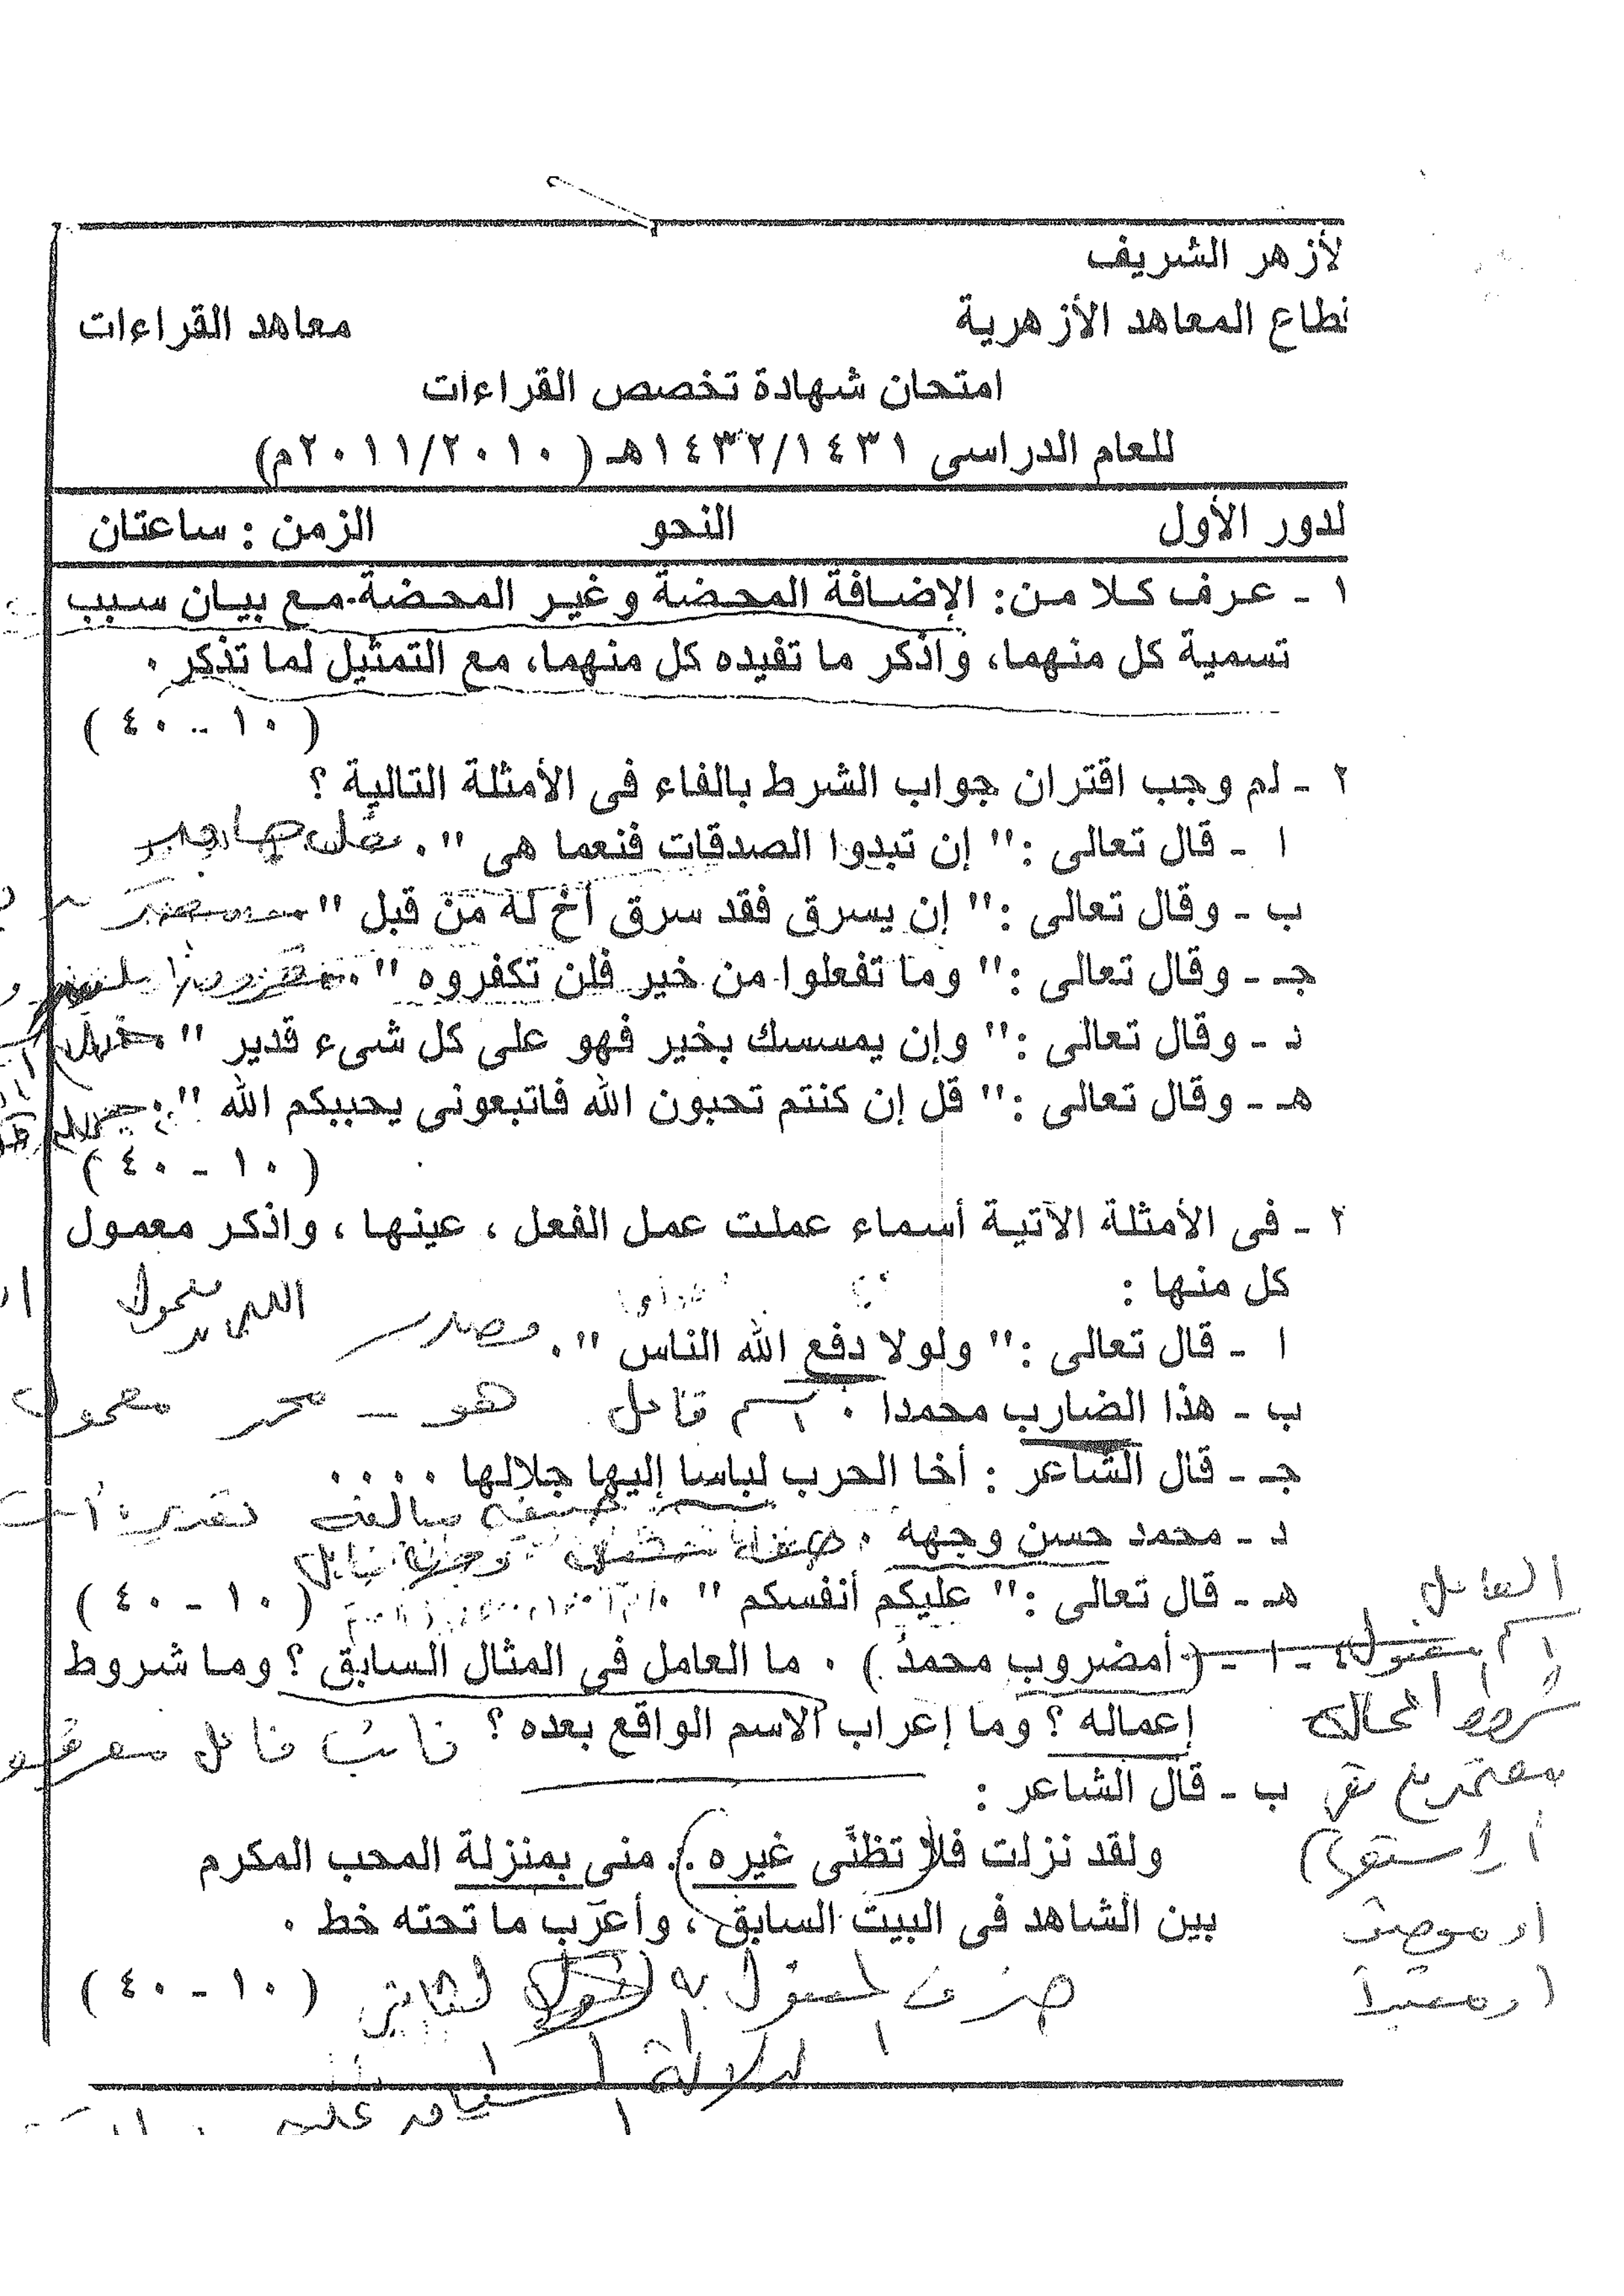 لأزهر الشريف
طاع المعاهد الأزهرية معاهد القراءات
امتحان شهادة تخصص القراءات
للعام الدراسى ١٤٣٢/١٤٣١هـ (٢٠١١/٢٠١٠م)
لدور الأول النحو الزمن : ساعتان
١ - عرف كلا من: الإضافة المحضة وغير المحضة مع بيان سبب
تسمية كل منهما، واذكر ما تفيده كل منهما، مع التمثيل لما تذكر .
(١٠ - ٤٠)
٢ - لم وجب اقتران جواب الشرط بالفاء فى الأمثلة التالية ؟
ا - قال تعالى :" إن تبدوا الصدقات فنعما هى ". فعل جامد
ب - وقال تعالى :" إن يسرق فقد سرق أخ له من قبل "
جـ - وقال تعالى :" وما تفعلوا من خير فلن تكفروه ".
د - وقال تعالى :" وإن يمسسك بخير فهو على كل شىء قدير "
هـ - وقال تعالى :" قل إن كنتم تحبون الله فاتبعونى يحببكم الله "
(١٠ - ٤٠)
٢ - فى الأمثلة الآتية أسماء عملت عمل الفعل ، عينها ، واذكر معمول
كل منها :
ا - قال تعالى :" ولولا دفع الله الناس ". مصدر
ب - هذا الضارب محمدا . اسم فاعل هو - محمد معمول
جـ - قال الشاعر : أخا الحرب لباسا إليها جلالها ....
صيغة مبالغة تقديره أنت
د - محمد حسن وجهه .
هـ - قال تعالى :" عليكم أنفسكم " (١٠ - ٤٠)
العامل
اسم مفعول
٤ - ا - (أمضروب محمدٌ) . ما العامل فى المثال السابق ؟ وما شروط
إعماله ؟ وما إعراب الاسم الواقع بعده ؟ نائب فاعل مرفوع
شروط
ب - قال الشاعر :
ولقد نزلت فلا تظنَّى غيره .. منى بمنزلة المحب المكرم
بين الشاهد فى البيت السابق ، وأعرب ما تحته خط .
أو استفهام
أو موصوف
أو مبتدأ
حذف المفعول به الثانى (١٠ - ٤٠)
لدلالة السياق عليه